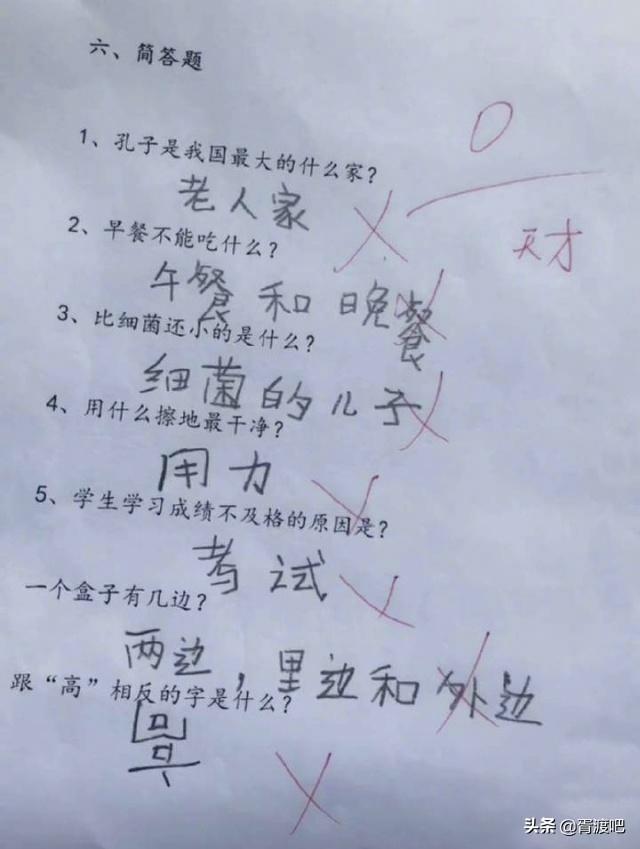 六、简答题
0
1、孔子是我国最大的什么家？
老人家
天才
2、早餐不能吃什么？
午餐和晚餐
3、比细菌还小的是什么？
细菌的儿子
4、用什么擦地最干净？
用力
5、学生学习成绩不及格的原因是？
考试
一个盒子有几边？
两边，里边和外边
跟“高”相反的字是什么？
头条 @胥渡吧